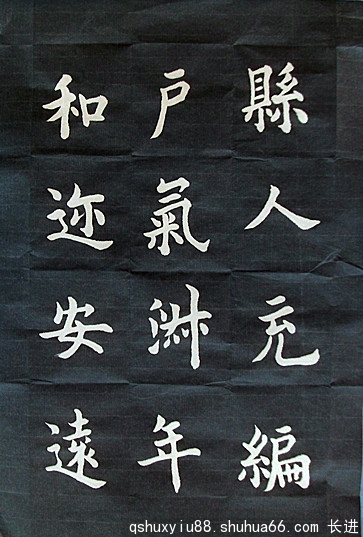 縣人充編
户氣淑年
和迩安遠
qshuxyiu88.shuhua66.com 长进